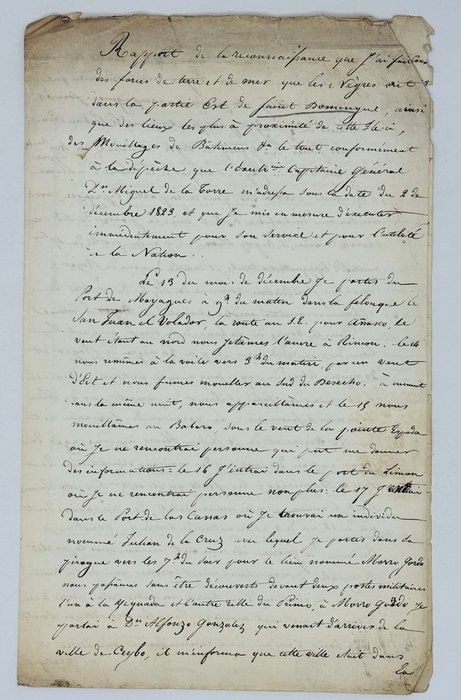 Rapport de la reconnaissance que J'ai faite
des forces de terre et de mer que les Nègres ont
dans la partie Est de Saint Domingue, ainsi
que des lieux les plus à proximité de cette Isle,
des Mouillages de Batimens &a le tout conformement
à la dépêche que l'Excellme Capitaine Général
Dn Miguel de la Torre m'adressa sous la date du 2 de
décembre 1823 et que Je mis en mesure d'executer
immédiatement pour son service et pour l'utilité
de la Nation..
Le 13 du mois de décembre Je partis du
Port de Mayagues à 9h du matin dans la felouque le
San Juan el Volador, la route au S.E. pour Añasco. le
vent étant au nord nous jetâmes l'ancre à Rincon. le 14
nous remîmes à la voile vers 3h du matin, par un vent
d'Est et nous fumes mouiller au Sud du Desecho. à minuit
dans la même nuit, nous appareillâmes et le 15 nous
mouillâmes au Babaro, sous le vent de la pointe Espada
où Je ne rencontrai personne qui put me donner
des informations: le 16 J'entrai dans le port du Limon
où Je ne rencontrai personne non plus: le 17 J'entrai
dans le Port de las Canas où Je trouvai un individu
nommé Julian de la Cruz avec lequel Je partis dans sa
pirogue vers les 7h du soir pour le lieu nommé Morro Gordo
nous passames sans être découverts devant deux postes militaires
l'un à la Yeguada et l'autre celle du Primo; à Morro Gordo Je
parlai à Dn Alfonzo Gonzalez qui venait d'arriver de la
ville de Ceybo, et m'informa que cette ville était dans
la